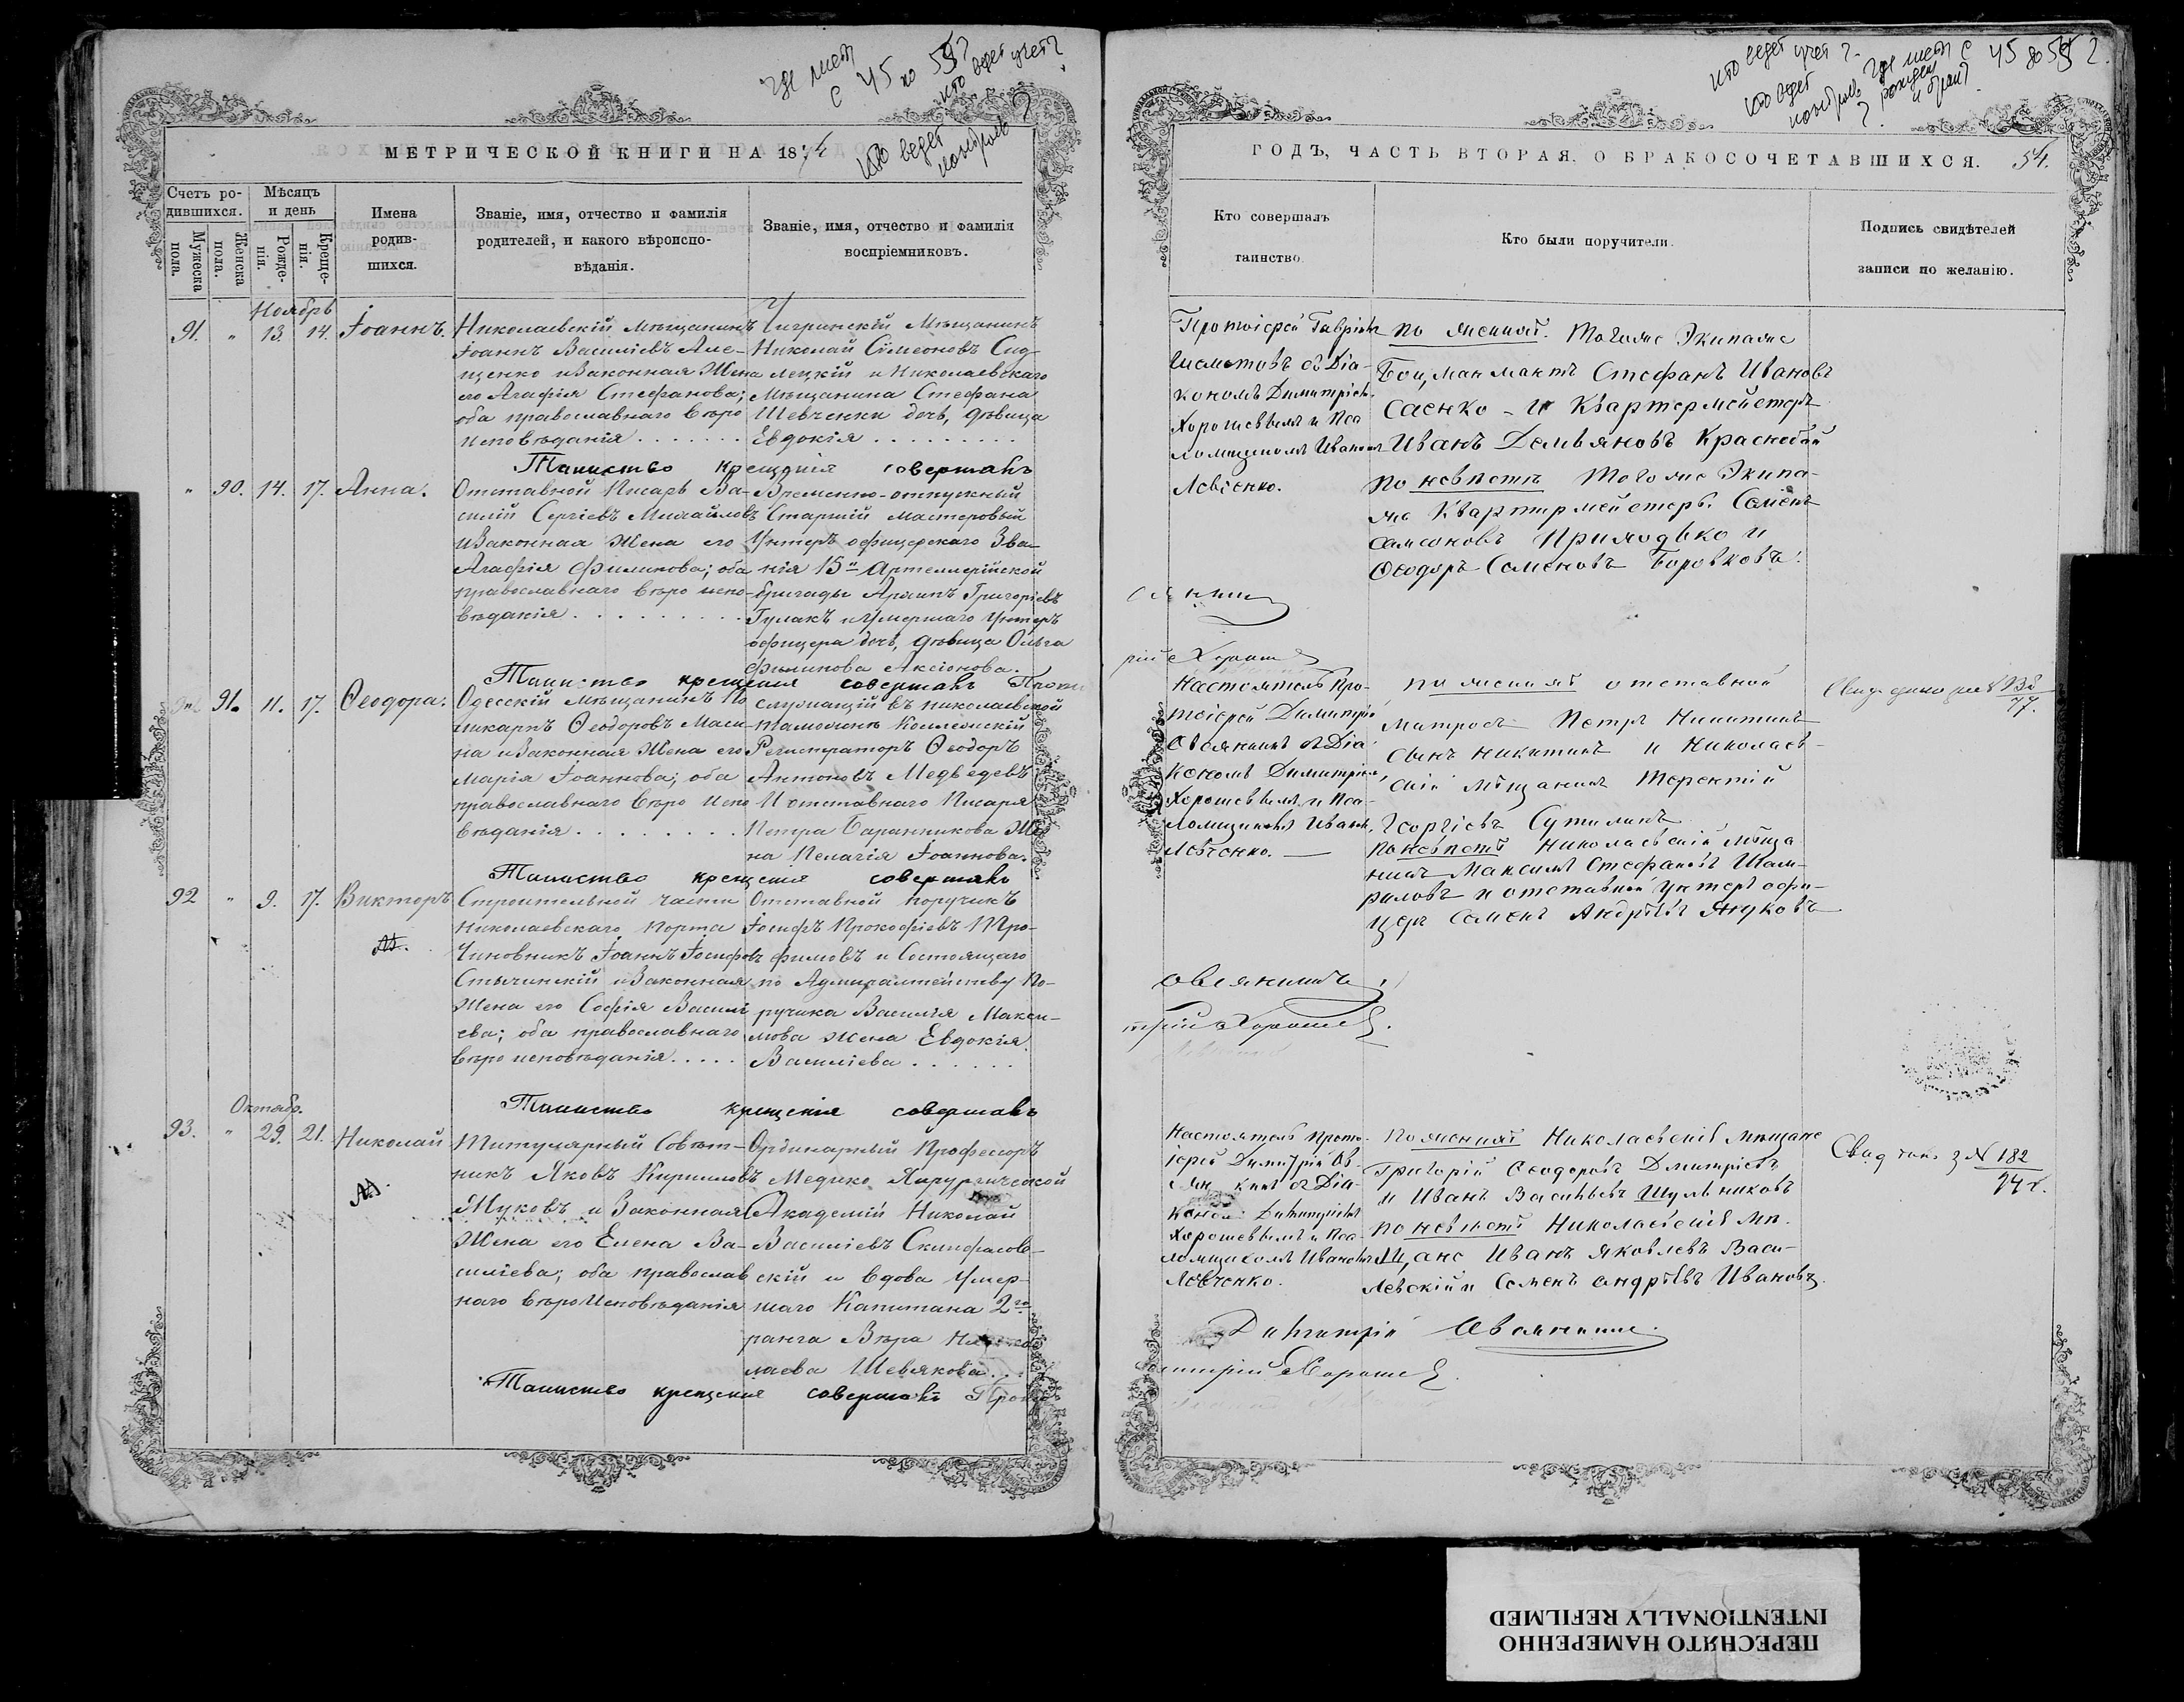 где лист
с 45 по 55?
кто ведет учет?
кто ведет
контроль?
МЕТРИЧЕСКОЙ КНИГИ НА 1874
Счетъ ро-
дившихся.
Мужеска
пола.
Женска
пола.
Мѣсяцъ
и день
Рожде-
нія.
Креще-
нія.
Имена
родив-
шихся.
Званіе, имя, отчество и фамилія
родителей, и какого вѣроиспо-
вѣданія.
Званіе, имя, отчество и фамилія
воспріемниковъ.
Ноябрь
91. " 13. 14. Іоаннъ.
Николаевскій Мѣщанинъ
Іоаннъ Василіевъ Але-
щенко и Законная Жена
его Агафія Стефанова;
оба православнаго вѣро
исповѣданія
Чигринскій Мѣщанинъ
Николай Симеоновъ Сид-
лецкій и Николаевскаго
Мѣщанина Стефана
Шевченки дочь, дѣвица
Евдокія
Таинство крещенія совершалъ
" 90. 14. 17. Анна.
Отставной Писарь Ва-
силій Сергіевъ Михайловъ
и Законная Жена его
Агафія Филипова; оба
православнаго вѣро испо-
вѣданія
Временно-отпускный
Старшій мастеровый
Унтеръ офицерскаго Зва-
нія 15й Артиллерійской
бригады Архипъ Григоріевъ
Гулакъ и Умершаго Унтеръ
офицера дочь, дѣвица Ольга
Филипова Аксіонова.
Таинство крещенія совершалъ Прото
91. 11. 17. Ѳеодора.
Одесскій Мѣщанинъ По
ликарпъ Ѳеодоровъ Маси-
на и Законная Жена его
Марія Іоаннова; оба
православнаго вѣро испо
вѣданія
служащій въ Николаевской
таможнѣ Коллежскій
Регистраторъ Ѳеодоръ
Антоновъ Медведевъ
И отставнаго Писаря
Петра Баранникова Же
на Пелагія Іоаннова.
Таинство крещенія совершалъ
92 " 9. 17. Викторъ
Строительной части
Николаевскаго Порта
Чиновникъ Іоаннъ Іосифовъ
Стычинскій и Законная
Жена его Софія Василі
ева; оба православнаго
вѣро исповѣданія
Отставной поручикъ
Іосифъ Прокофіевъ Тро-
фимовъ и Состоящаго
по Адмиралтейству По-
ручика Василія Макси-
мова Жена Евдокія
Василіева
Таинство крещенія совершалъ
Октябр.
93. " 29. 21. Николай
Титулярный Совѣт-
никъ Яковъ Кирилловъ
Жуковъ и Законная
Жена его Елена Ва-
силіева; оба православ
наго вѣро Исповѣданія
Ординарный Профессоръ
Медико Хирургической
Академіи Николай
Василіевъ Склифасов-
скій и вдова Умер-
шаго Капитана 2го
ранга Вѣра
лаева Шевякова
Таинство крещенія совершалъ Прото
кто ведет учет?
кто ведет
контроль
?
где лист с 45 до 55?
рожден
и брак?
ГОДЪ, ЧАСТЬ ВТОРАЯ. О БРАКОСОЧЕТАВШИХСЯ. 54.
Кто совершалъ
таинство.
Кто были поручители.
Подпись свидѣтелей
записи по желанію.
Протоіерей Гавріилъ
Шаметовъ съ Діа-
кономъ Димитріемъ
Хорошевымъ и Пса
ломщикомъ Иваномъ
Левченко.
по женихѣ. Тогоже Экипажа
Боцманматъ Стефанъ Ивановъ
Саенко - и Квартермейстеръ
Иванъ Демьяновъ Краснобай
по невѣстѣ Тогоже Экипа-
жа Квартирмейстеръ Семенъ
Самсоновъ Приходько и
Ѳеодоръ Семеновъ Боровковъ.
Настоятель Про-
тоіерей Димитрій
Овсянкинъ съ Діа-
кономъ Димитріемъ
Хорошевымъ и Пса-
ломщикомъ Иваномъ
Левченко.
по женихѣ отставной
Матросъ Петръ Никитинъ
сынъ Никитинъ и Николаев-
скій мѣщанинъ Терентій
Георгіевъ Сутилинъ
по невѣстѣ Николаевскій мѣща
нинъ Максимъ Стефановъ Шам-
риловъ и отставной унтеръ офи-
церъ Семенъ Андрѣевъ Януковъ
Овсянкинъ
трій Хорошев.
Настоятель Прото-
іерей Димитрій Ов-
сян кинъ съ Діа-
кономъ Димитріемъ
Хорошевымъ и Пса-
ломщикомъ Иваномъ
Левченко.
по женихѣ Николаевскіе Мѣщане
Григорій Ѳеодоровъ Дмитріевъ
и Иванъ Васильевъ Шульниковъ
по невѣстѣ Николаевскіе Мѣ-
щане Иванъ Яковлевъ Васи-
левскій и Семенъ Андрѣевъ Ивановъ.
№ 182
Димитрій Овсянкинъ.
митрій Хорошев
ПЕРЕСНЯТО НАМЕРЕННО
INTENTIONALLY REFILMED